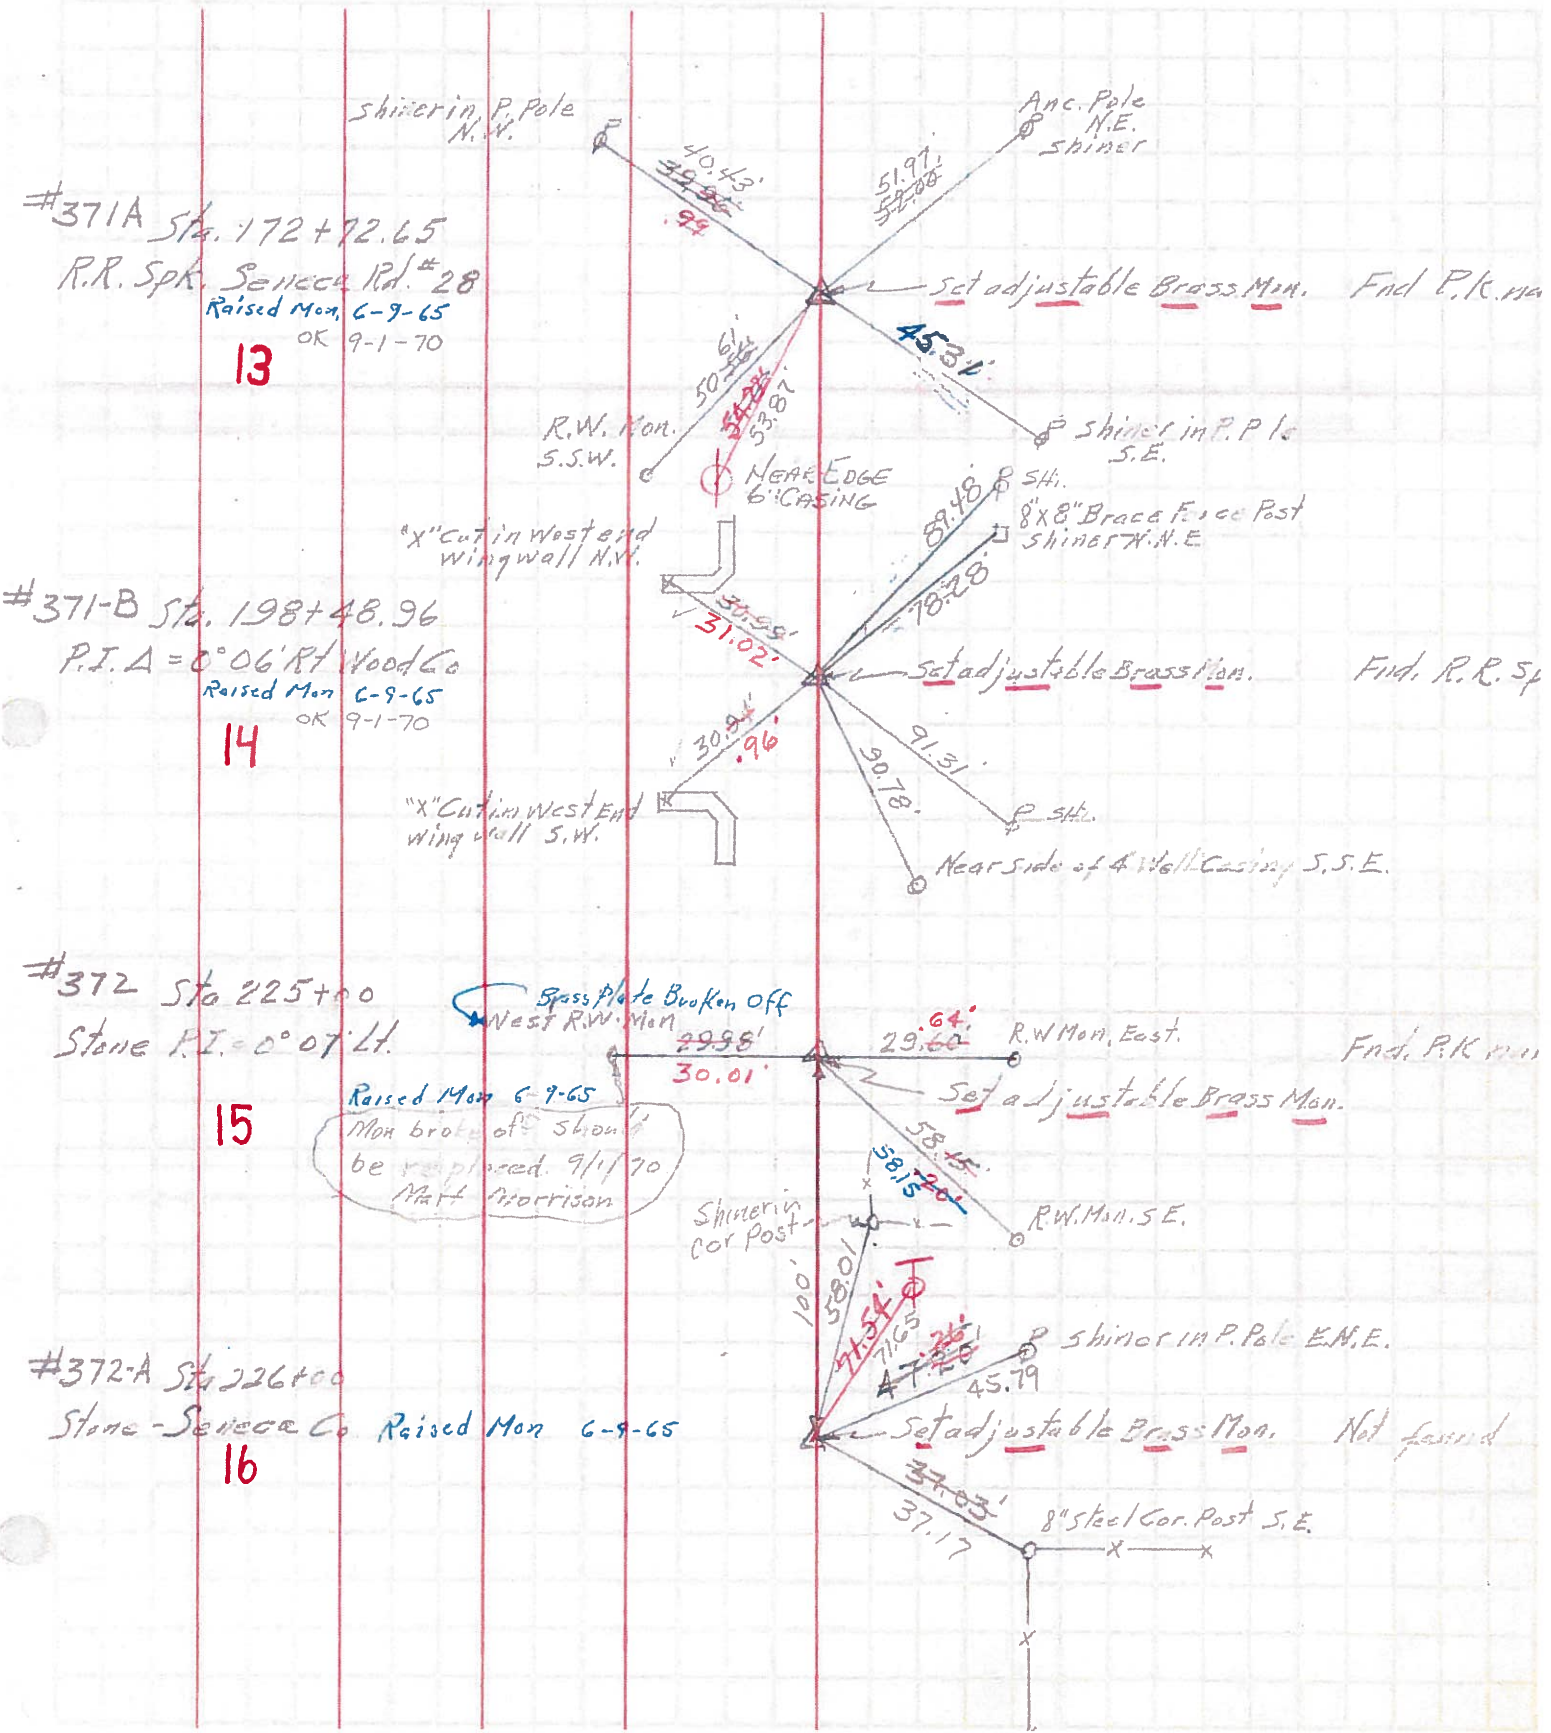 Shiner in P. Pole
N.W.
Anc. Pole
N.E.
shiner
40.43'
39.96'
.99
51.97'
52.00'
#371A Sta. 172+72.65
R.R. Spk. Seneca Rd. #28
Raised Mon. 6-9-65
OK 9-1-70
13
Set adjustable Brass Mon. Fnd P.K. na
45.31'
61'
50.56'
54.28'
53.87'
R.W. Mon.
S.S.W.
NEAR EDGE
6" CASING
Shiner in P. Pole
S.E.
SH.
8"x8" Brace Fence Post
shiner N.N.E
89.48'
78.28'
"X" Cut in West end
wing wall N.W.
30.99'
31.02'
#371-B Sta. 198+48.96
P.I. Δ = 0°06' Rt Wood Co
Raised Mon 6-9-65
OK 9-1-70
14
Set adjustable Brass Mon. Fnd. R.R. Sp
30.91'
.96'
91.31'
90.78'
"X" Cut in West End
wing wall S.W.
SH.
Near side of 4" Well Casing S.S.E.
#372 Sta 225+00
Stone P.I. = 0°07' Lt.
Brass Plate Broken Off
West R.W. Mon
29.98'
30.01'
.64'
29.60'
R.W Mon. East.
Fnd. P.K
Set adjustable Brass Mon.
Raised Mon 6-9-65
15
Mon broke off should
be replaced. 9/1/70
Mart Morrison
58.15'
.20'
58.15
R.W. Mon. S.E.
Shiner in
Cor Post
100'
58.01
71.54'
71.65
.26'
47.20'
45.79
Shiner in P. Pole E.N.E.
#372-A Sta 226+00
Stone - Seneca Co. Raised Mon 6-9-65
16
Set adjustable Brass Mon. Not found
37.03'
37.17
8" Steel Cor. Post S.E.